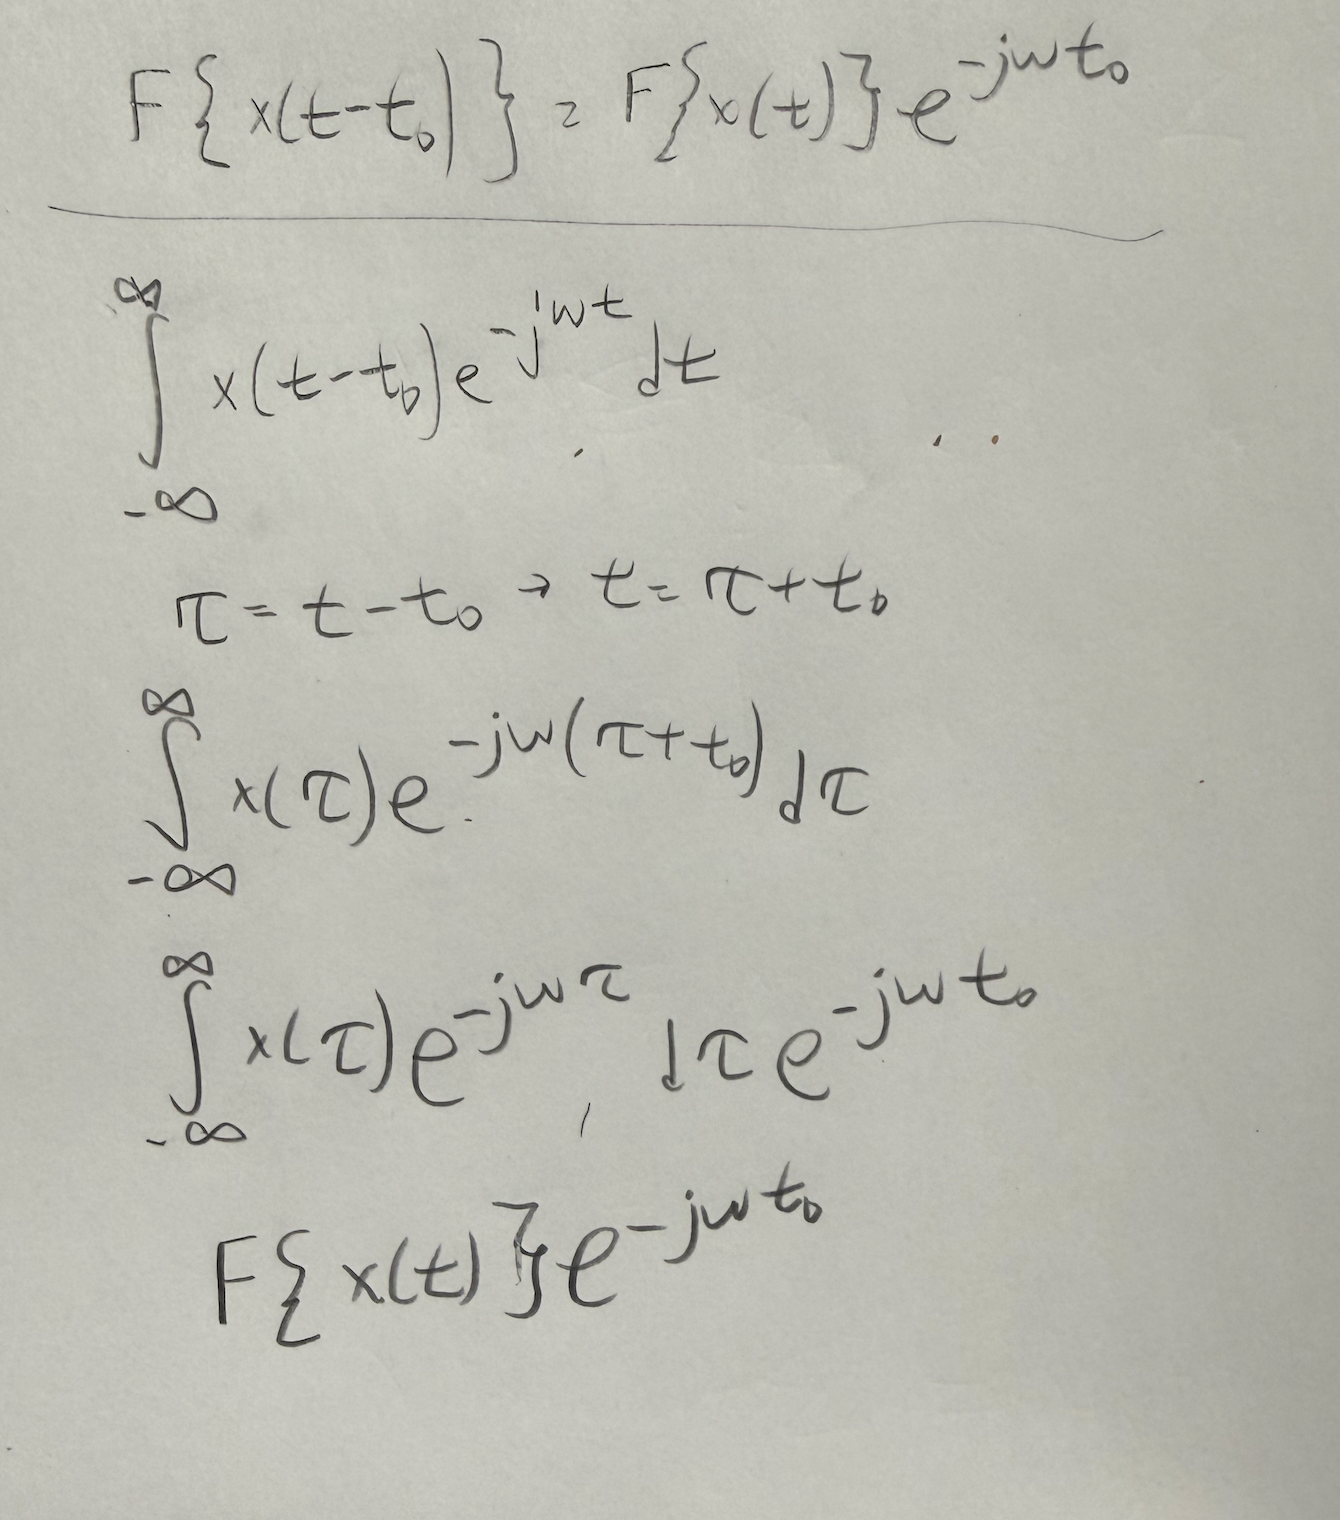 F{x(t-t₀)} = F{x(t)}e^{-jωt₀}
∫_{-∞}^{∞} x(t-t₀)e^{-jωt}dt
τ = t-t₀ → t = τ+t₀
∫_{-∞}^{∞} x(τ)e^{-jω(τ+t₀)}dτ
∫_{-∞}^{∞} x(τ)e^{-jωτ} dτ e^{-jωt₀}
F{x(t)}e^{-jωt₀}